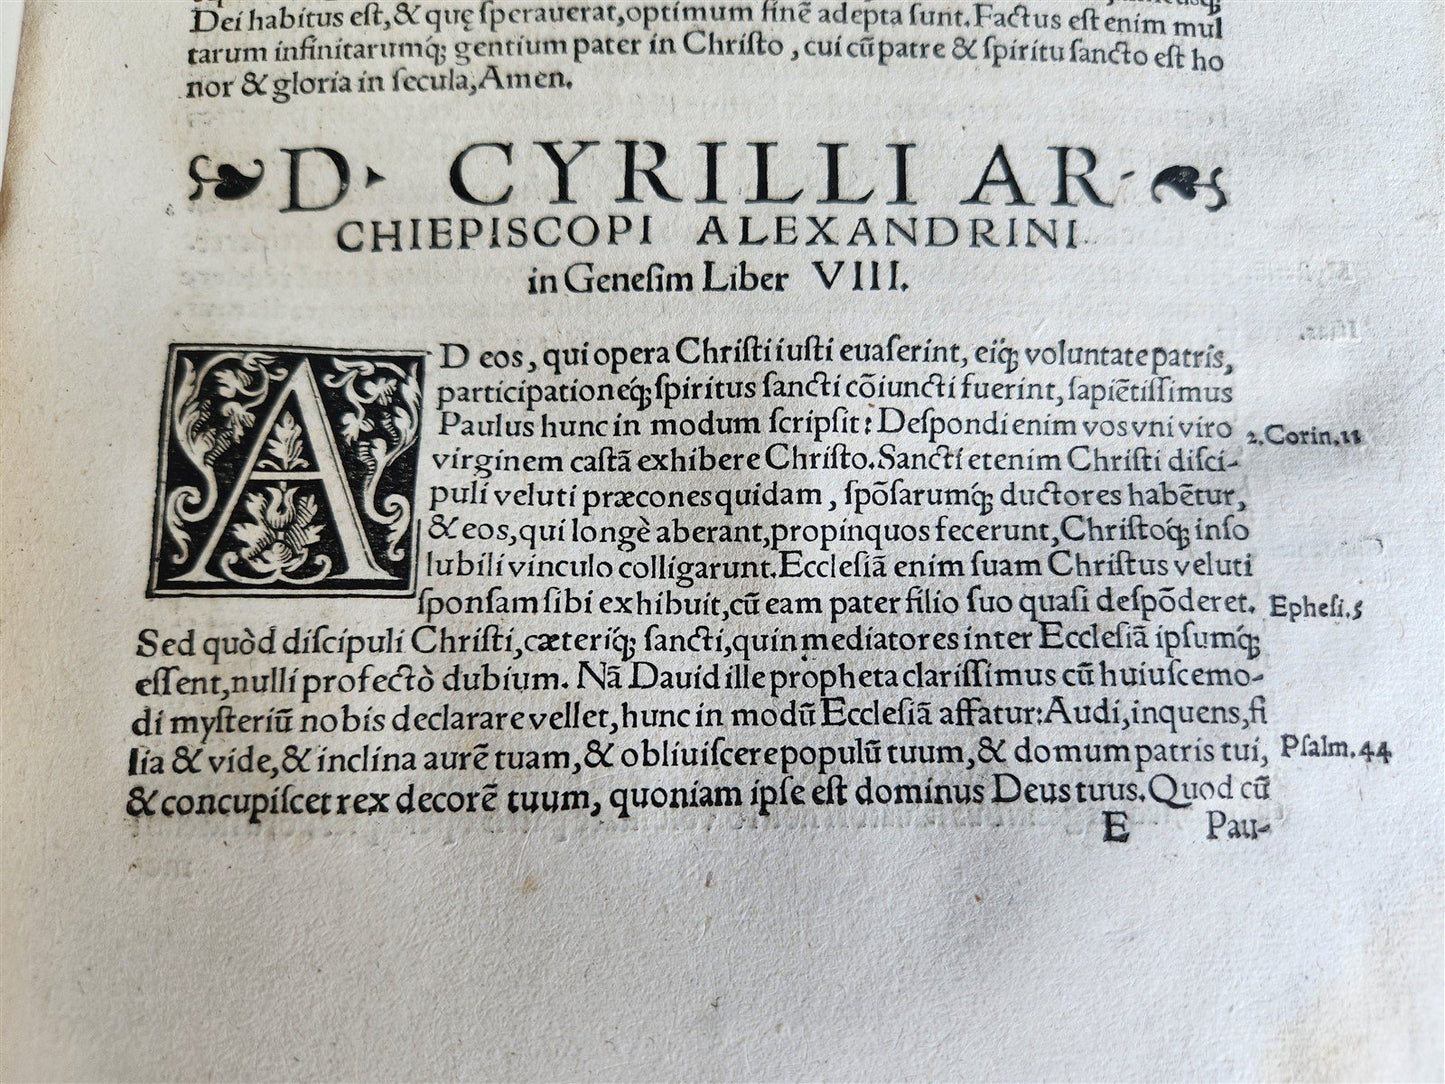 Dei habitus est, & quę sperauerat, optimum finẽ adepta sunt. Factus est enim mul
tarum infinitarumq́; gentium pater in Christo, cui cũ patre & spiritu sancto est ho
nor & gloria in secula, Amen.
D. CYRILLI AR-
CHIEPISCOPI ALEXANDRINI
in Genesim Liber VIII.
AD eos, qui opera Christi iusti euaserint, eiq́; voluntate patris,
participationeq́; spiritus sancti cõiuncti fuerint, sapiẽtissimus
Paulus hunc in modum scripsit: Despondi enim vos vni viro 2. Corin. 11
virginem castã exhibere Christo. Sancti etenim Christi disci-
puli veluti præcones quidam, spõsarumq́; ductores habẽtur,
& eos, qui longè aberant, propinquos fecerunt, Christoq́; inso
lubili vinculo colligarunt. Ecclesiã enim suam Christus veluti
sponsam sibi exhibuit, cũ eam pater filio suo quasi despõderet. Ephesi. 5
Sed quòd discipuli Christi, cæteriq́; sancti, quin mediatores inter Ecclesiã ipsumq́;
essent, nulli profectò dubium. Nã Dauid ille propheta clarissimus cũ huiuscemo-
di mysteriũ nobis declarare vellet, hunc in modũ Ecclesiã affatur: Audi, inquens, fi
lia & vide, & inclina aurẽ tuam, & obliuiscere populũ tuum, & domum patris tui, Psalm. 44
& concupiscet rex decorẽ tuum, quoniam ipse est dominus Deus tuus. Quod cũ
E Pau-